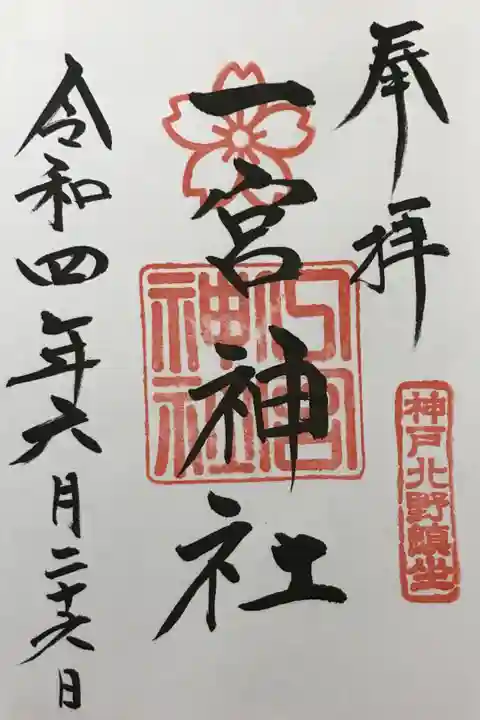 奉拝
神戸北野鎮坐
一宮神社
神社
令和四年六月二十六日